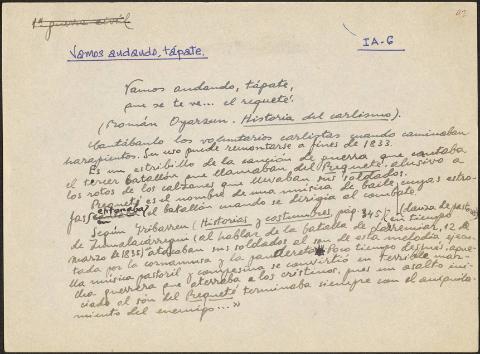 1ª guerra civil
Vamos andando, tápate.
IA-6
Vamos andando, tápate,
que se te ve... el requeté.
(Román Oyarzun. Historia del carlismo).
Cantábanlo los voluntarios carlistas cuando caminaban
harapientos. Su uso puede remontarse a fines de 1833.
Es un estribillo de la canción de guerra que cantaba
el tercer batallón que llamaban del Requeté, alusivo a
los rotos de los calzones que llevaban sus soldados.
Requeté es el nombre de una música de baile cuyas estro-
fas entonaba el batallón cuando se dirigía al combate.
Según Iribarren (Historias y costumbres, pág. 345) (danza de pastores)
de Zumalacárregui (al hablar de la batalla de Larremiar, 12 de en tiempo
marzo de 1835) atacaban sus soldados al son de esta melodía ejecu-
tada por la cornamusa y la pandereta. Poco tiempo después, aque-
lla música pastoril y campesina se convirtió en terrible mar-
cha guerrera que aterraba a los cristinos, pues un asalto ini-
ciado al son del Requeté terminaba siempre con el aniquila-
miento del enemigo...»